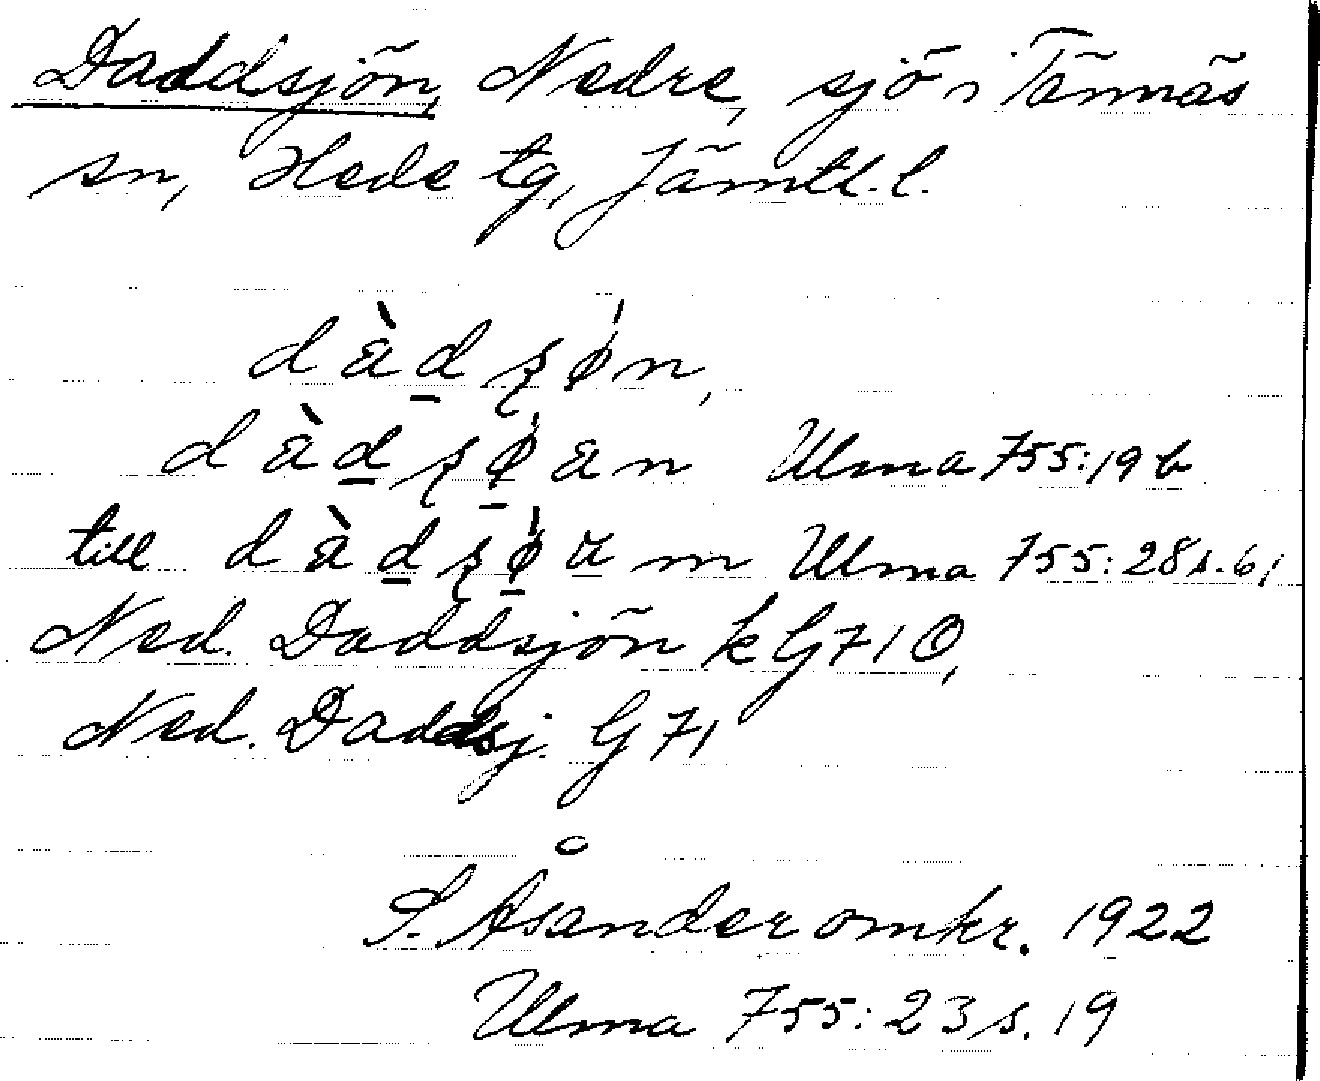 Daddsjön, Nedre, sjö i Tännäs
sn, Hede tg, Jämtl. l.
dàdʂø̀n,
dàdʂøan Ulma 755:19 b
till dàdʂøam Ulma 755:28 s. 6;
Ned. Daddsjön k G710,
Ned. Daddsj. G 71
S. Åsander omkr. 1922
Ulma 755:23 s. 19